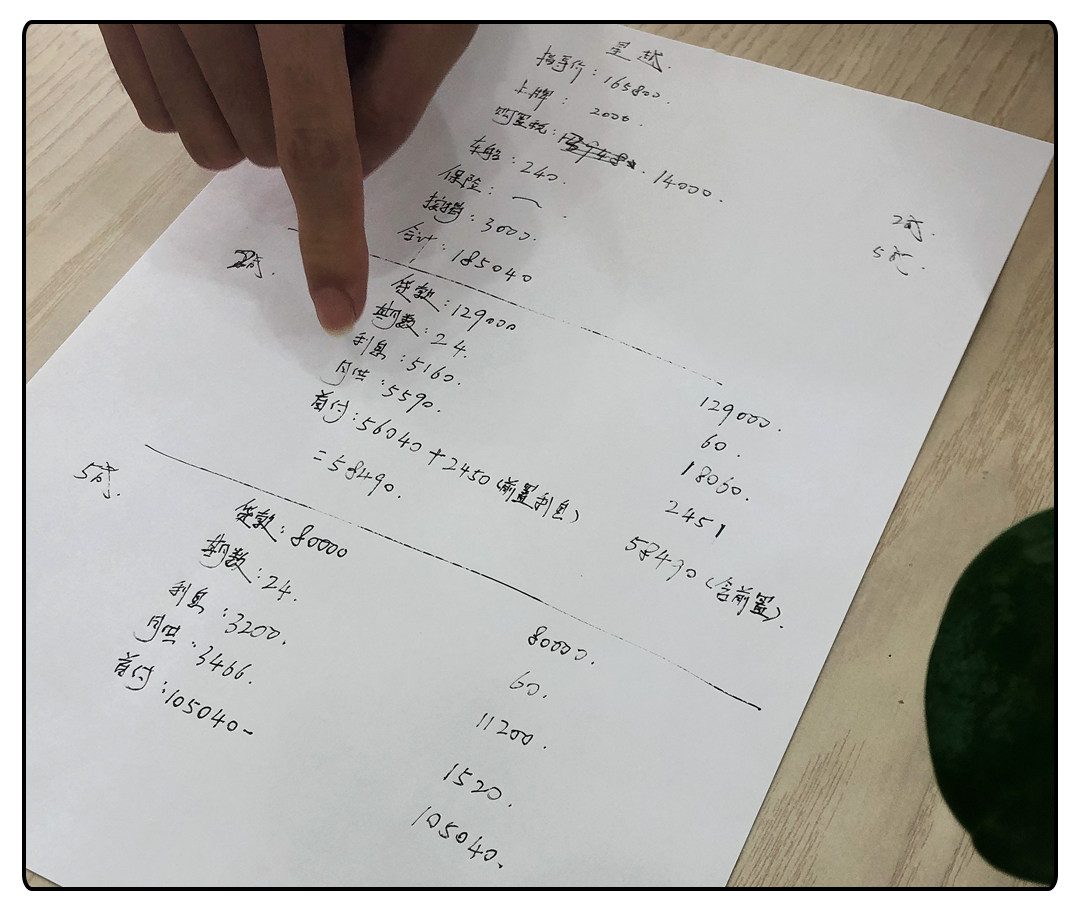 星越.
指导价:165800.
上牌: 2000.
购置税: 14000.
车船:240.
保险: 一.
按揭:3000.
合计:185040
2成.
5成.
2成.
贷款:129000
期数:24.
利息:5160.
月供:5590.
首付:56040+2450(前置利息)
=58490.
129000.
60.
18060.
2451
58490(含前置).
5成.
贷款:80000
期数:24.
利息:3200.
月供:3466.
首付:105040-
80000.
60.
11200.
1520.
105040.